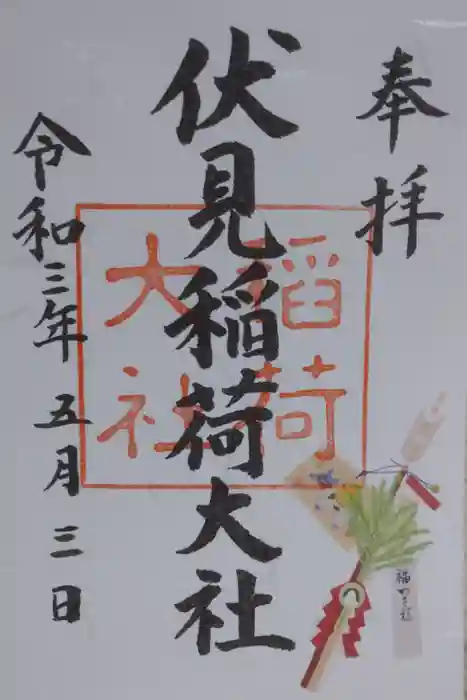 奉拝
伏見稲荷大社
稲荷
大社
令和三年 五月 三日